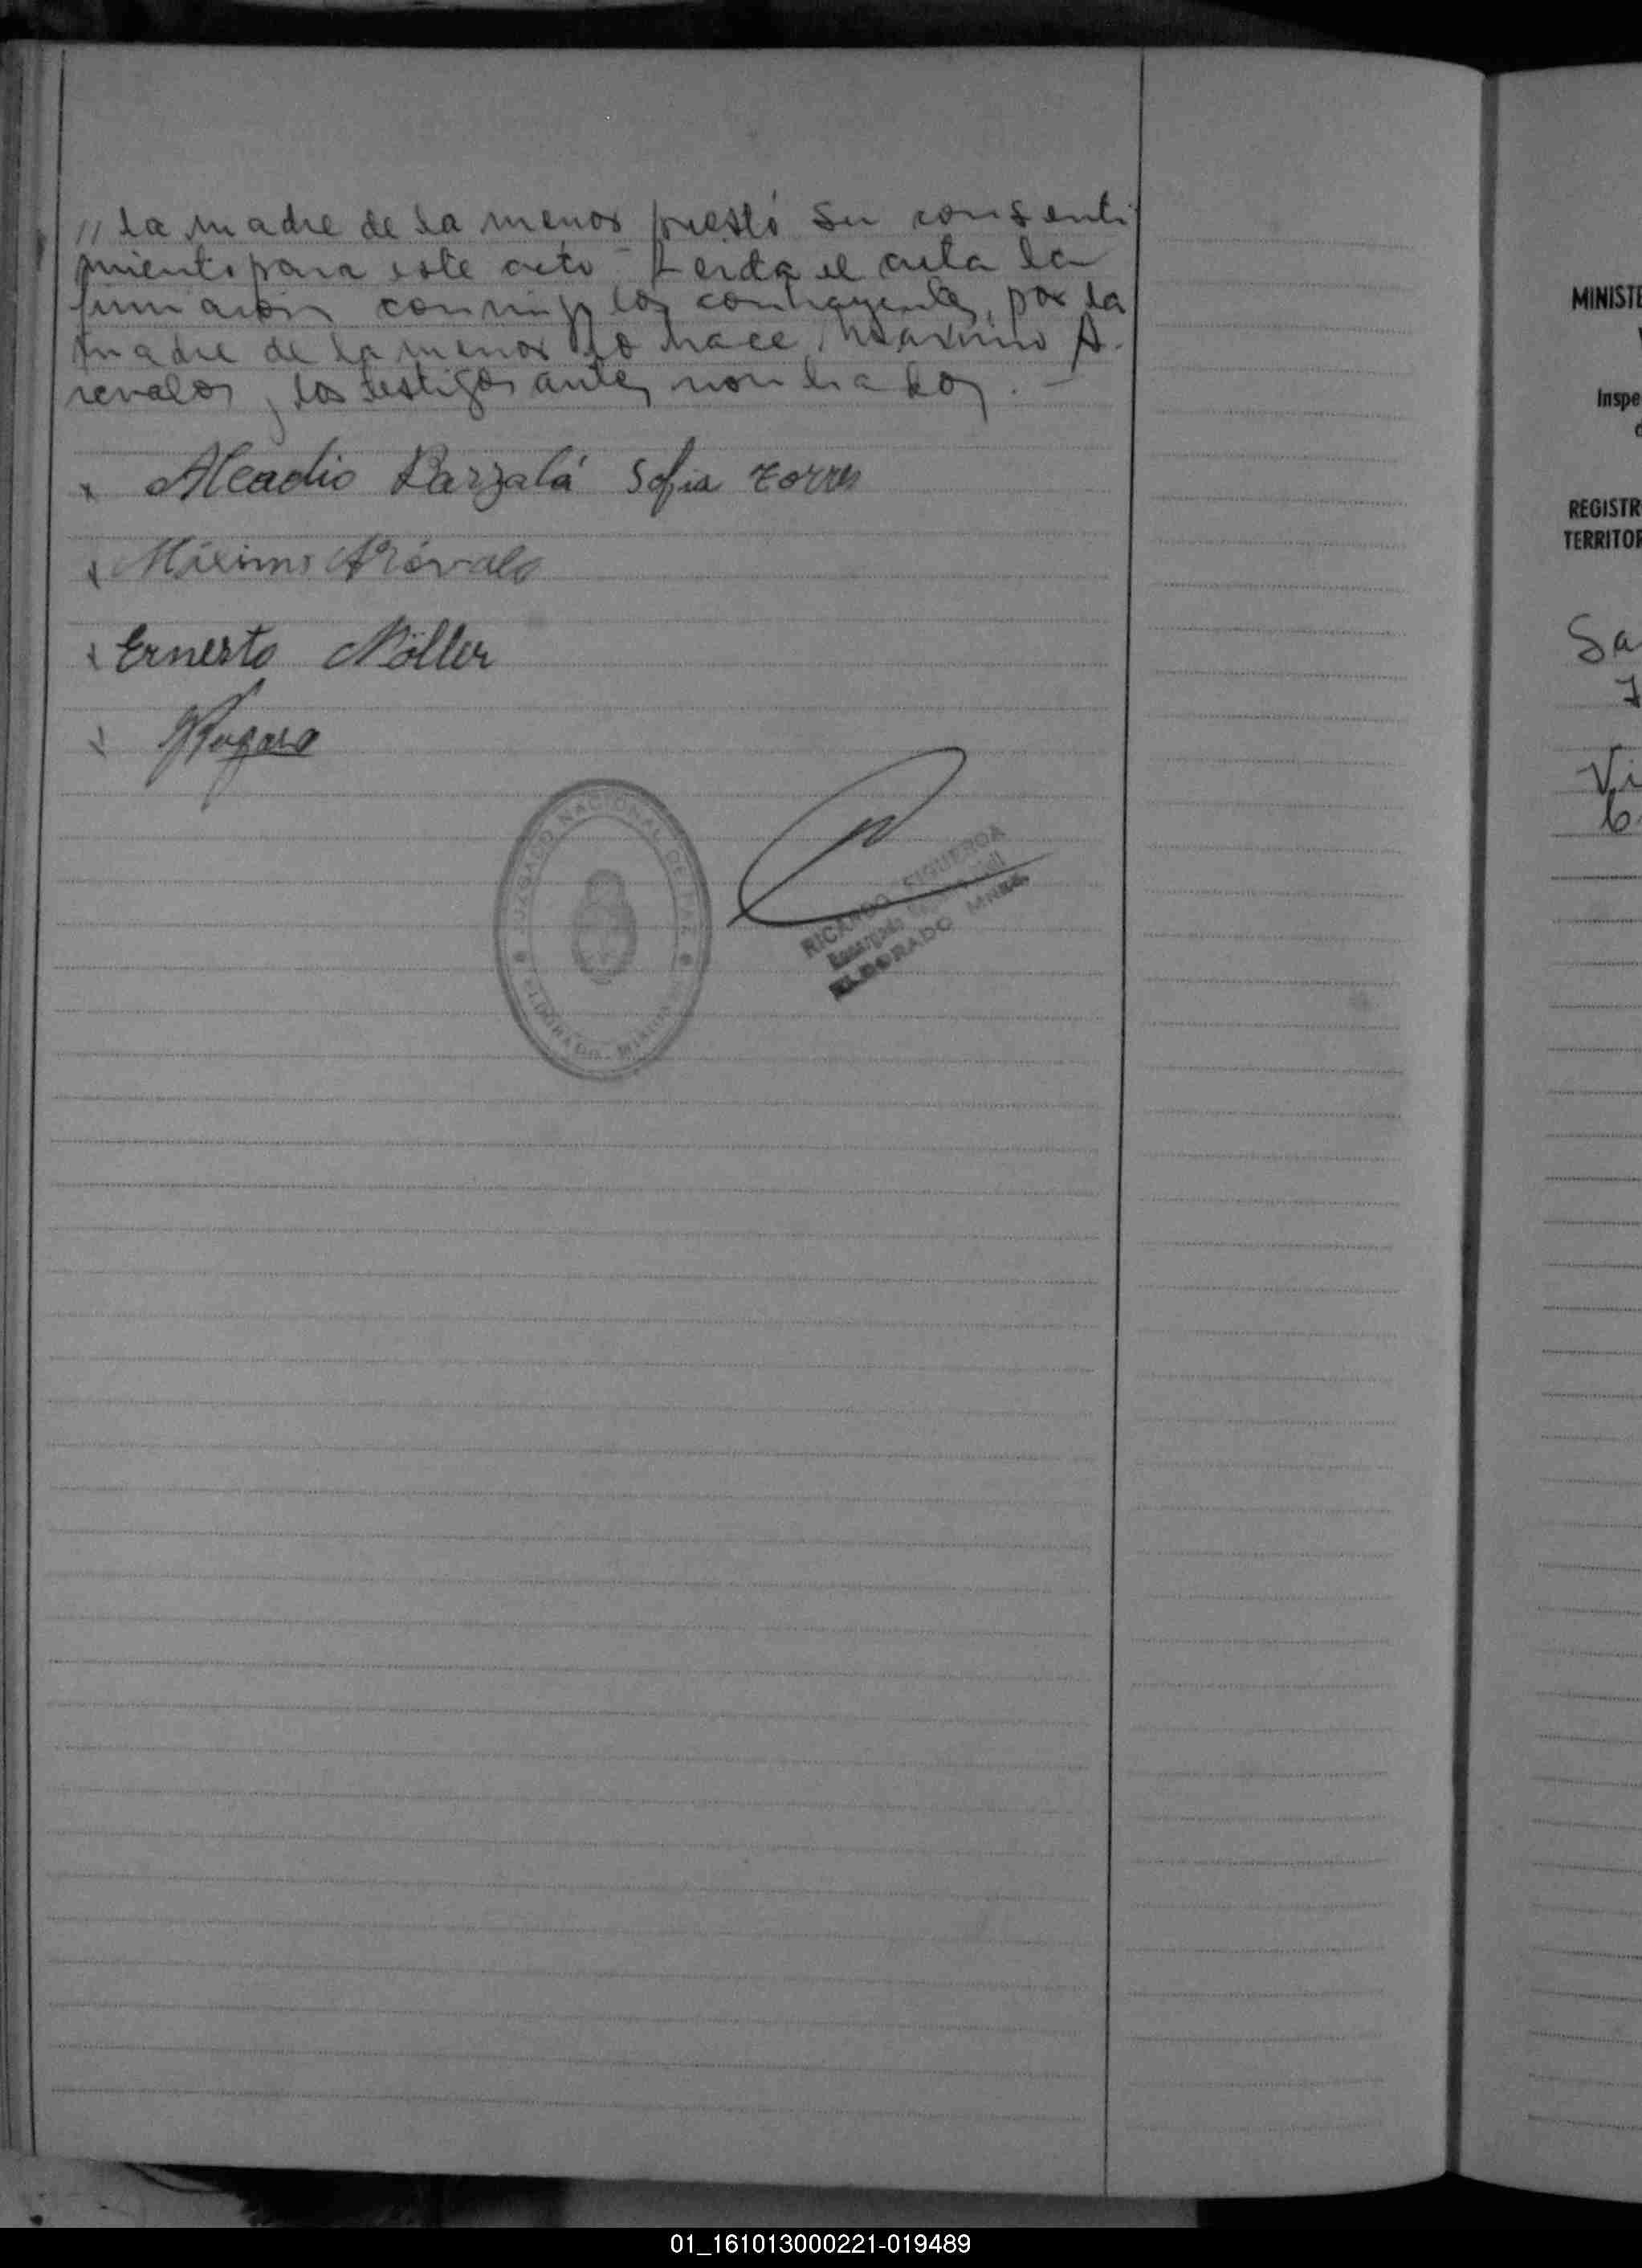 // la madre de la menor prestó su consenti
miento para este acto - Leida el acta la
firmaron conmigo los contrayentes, por la
madre de la menor lo hace Maximo A.
revalos, los testigos antes nombrados. -
x Alcadio Barzalá Sofia Torres
x Máximo Arévalo
x Ernesto Möller
x
JUZGADO NACIONAL DE PAZ
ELDORADO - MISIONES
RICARDO FIGUEROA
Encargado Registro Civil
ELDORADO MNES.
MINISTE
Inspe
REGISTR
TERRITOR
Sa
7
Vi
6
01_161013000221-019489